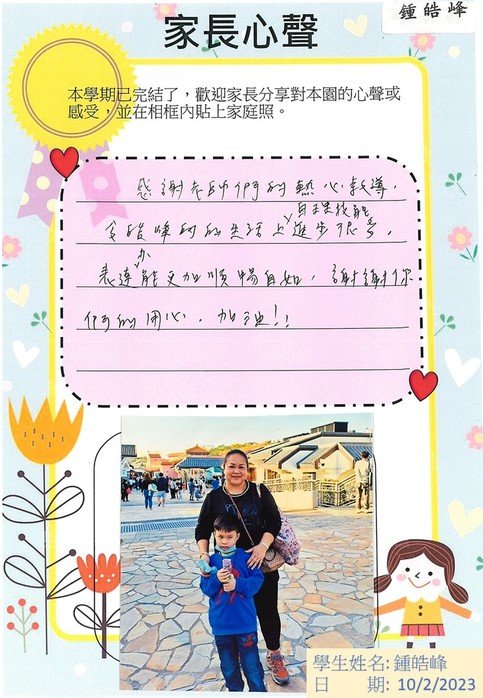 鍾皓峰
家長心聲
本學期已完結了，歡迎家長分享對本園的心聲或
感受，並在相框內貼上家庭照。
感謝老師們的熱心教導，
自主技能
令皓峰的生活上進步很多，
亦
表達能更加順暢自如，謝謝你
們的用心，加油!!
學生姓名: 鍾皓峰
日　　期: 10/2/2023